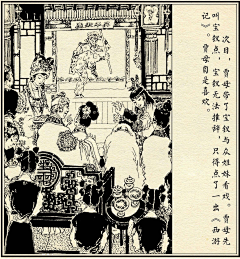 次日，贾母带了宝钗与众姐妹看戏。贾母先
叫宝钗点，宝钗无法推辞，只得点了一出《西游
记》。贾母自是喜欢。